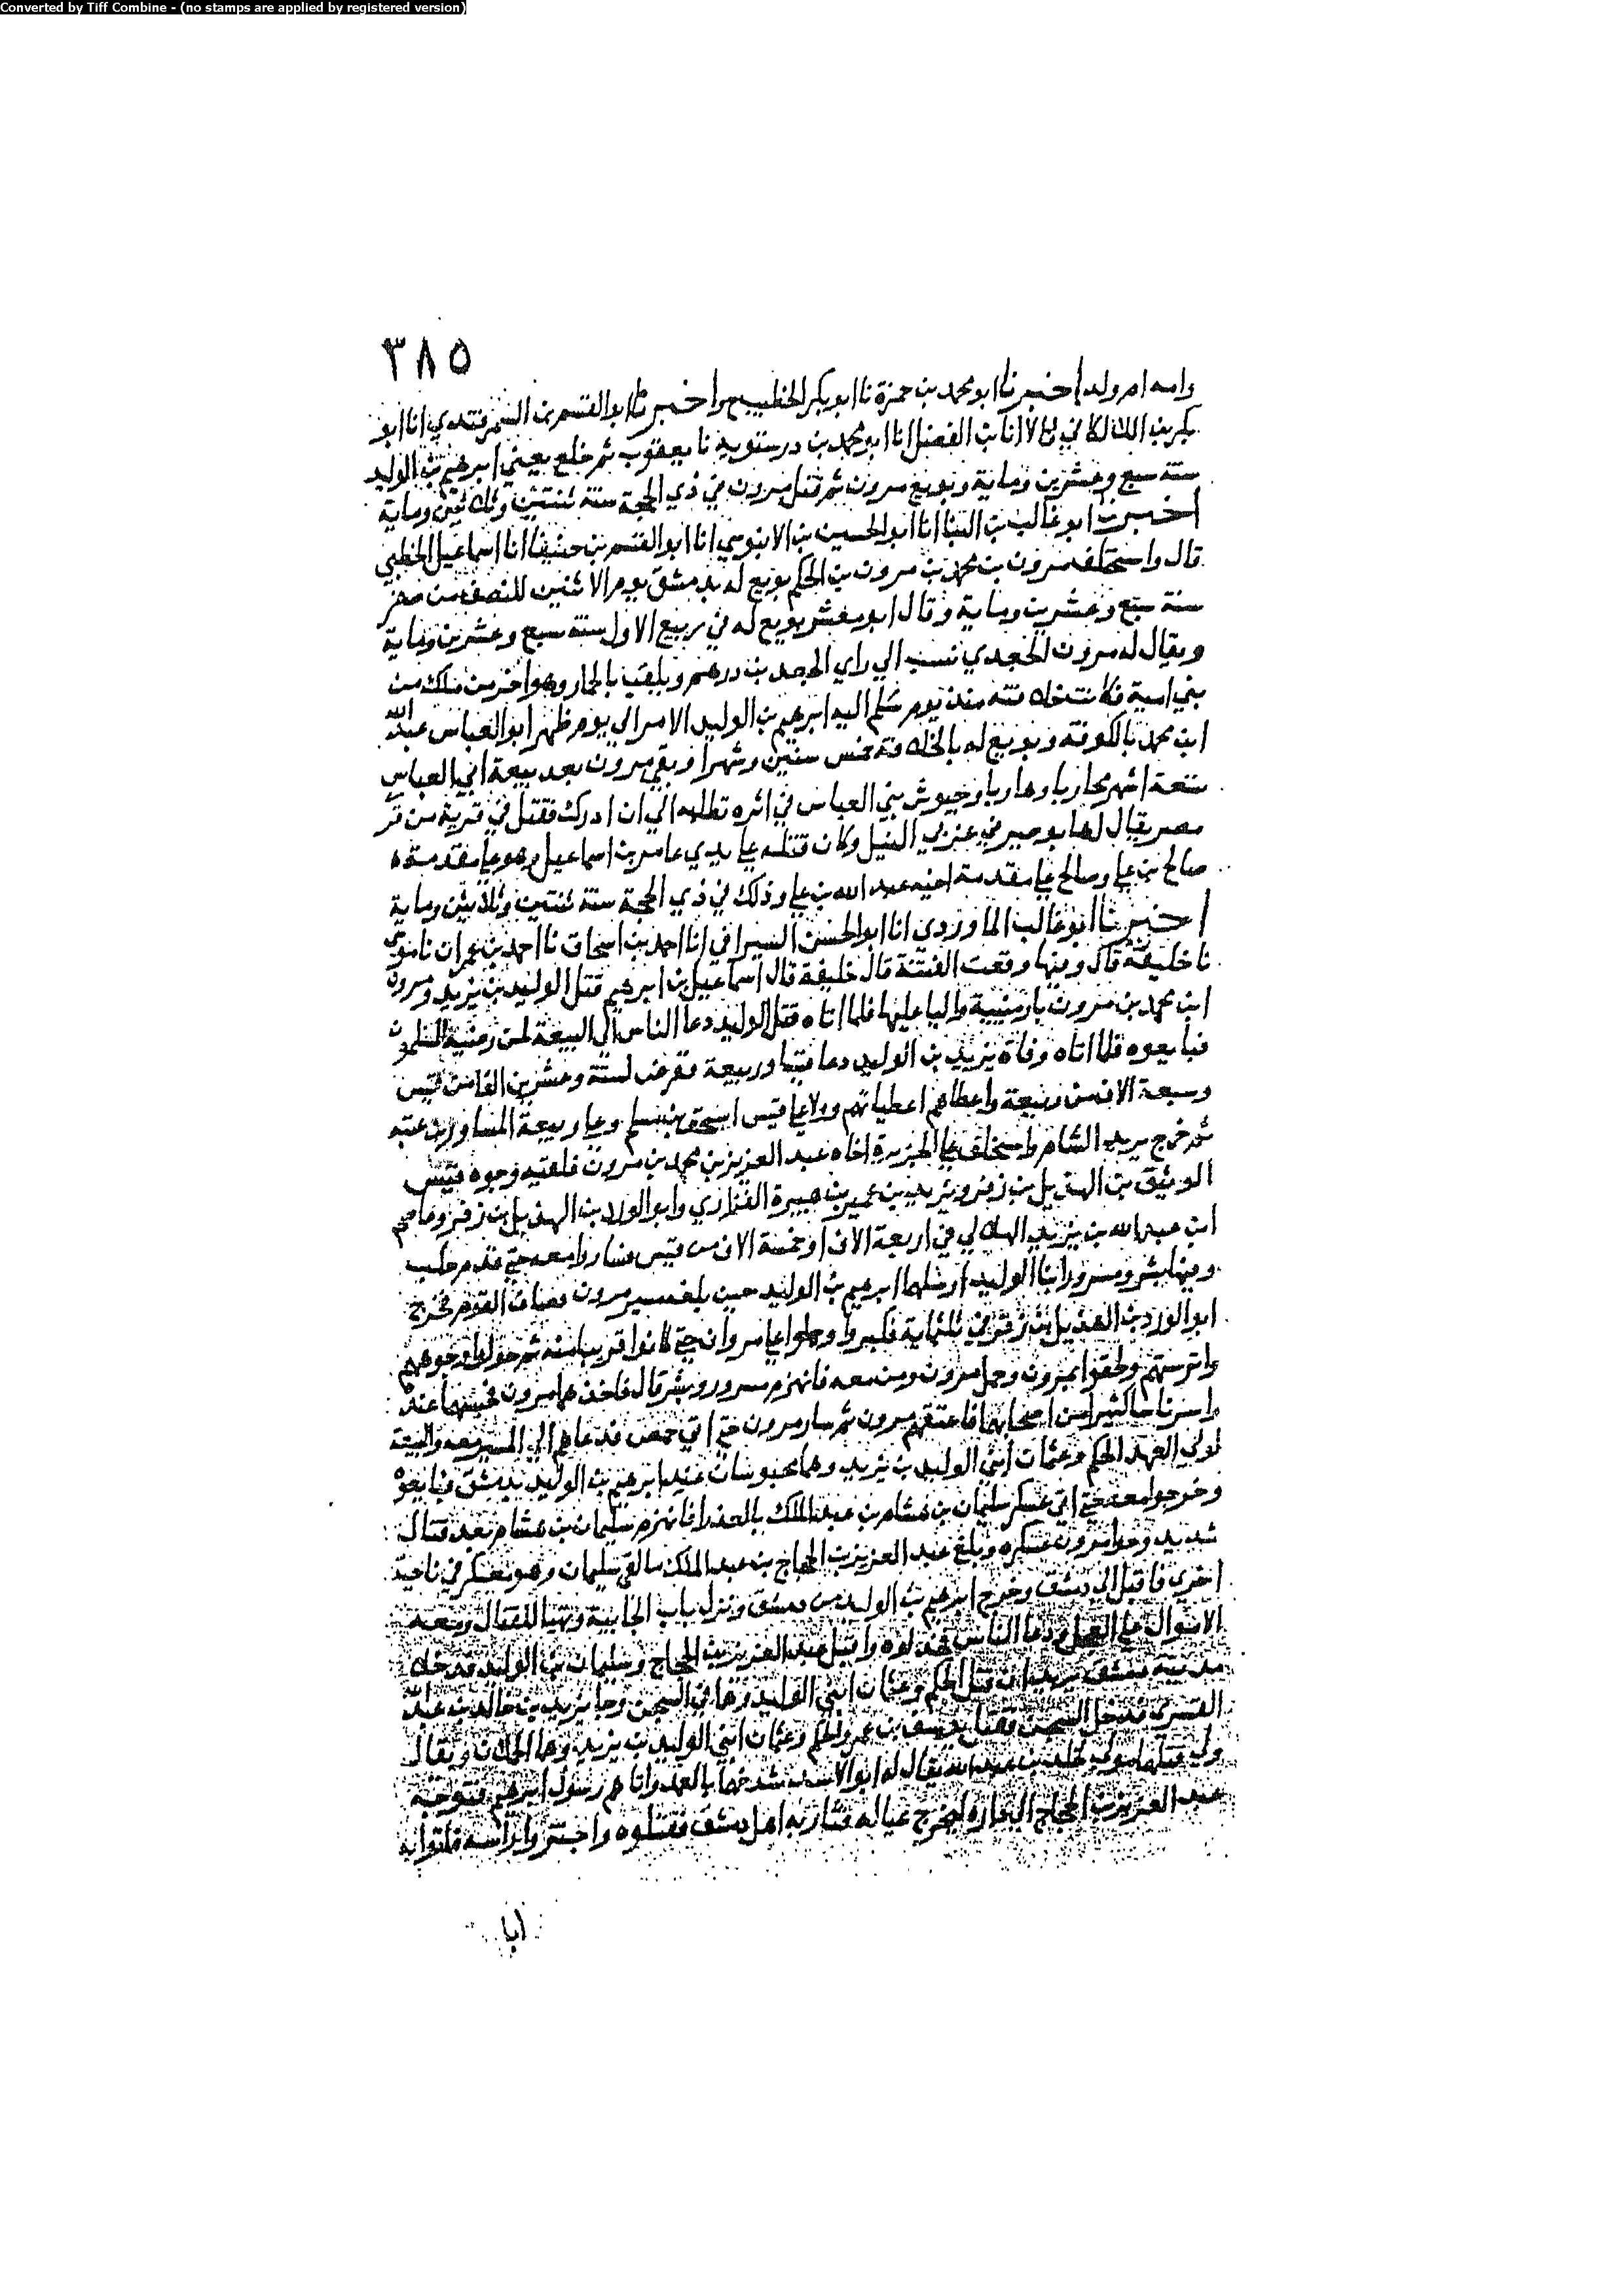 Converted by Tiff Combine - (no stamps are applied by registered version)
٣٨٥
وامه ام ولد اخبرنا ابو محمد بن حمزة نا ابو بكر الخطيب ح واخبرنا ابو القسم بن السمرقندي انا ابو
بكر بن اللالكاني قالا انا بن الفضل انا ابو محمد بن درستويه نا يعقوب ثم خلع يعني ابرهيم بن الوليد
سنة سبع وعشرين وماية وبويع مرون ثم قتل مرون في ذي الحجة سنة ثنتين وثلاثين وماية
اخبرنا ابو غالب بن البنا انا ابو الحسين بن الابنوسي انا ابو القسم بن حنيفا انا اسماعيل الخطبي
قال واستخلف مرون بن محمد بن مرون بن الحكم بويع له بدمشق يوم الاثنين للنصف من صفر
سنة سبع وعشرين وماية وقال ابو معشر بويع له في ربيع الاول سنة سبع وعشرين وماية
ويقال له مرون الجعدي نسب الي راي الجعد بن درهم ويلقب بالحمار وهو اخر من ملك من
بني امية فكانت خلافته منذ يوم سلم اليه ابرهيم بن الوليد الامر الي يوم ظهر ابو العباس عبد الله
ابن محمد بالكوفة وبويع له بالخلافة خمس سنين وشهرا وبقي مرون بعد بيعة ابي العباس
تسعة اشهر محاربا وهاربا وجيوش بني العباس في اثره تطلبه الي ان ادرك فقتل في قرية من قر
مصر يقال لها بوصير في غربي النيل وكان قتله علي يدي عامر بن اسماعيل وهو علي مقدمته
صالح بن علي وصالح علي مقدمة اخيه عبد الله بن علي وذلك في ذي الحجة سنة ثنتين وثلاثين وماية
اخبرنا ابو غالب الماوردي انا ابو الحسن السيرافي انا احمد بن اسحاق نا احمد بن عمران نا موسي
نا خليفة قال وفيها وقعت الفتنة قال خليفة قال اسماعيل بن ابرهيم قتل الوليد بن يزيد ومرون
ابن محمد بن مرون بارمينية واليا عليها فلما اتاه قتل الوليد دعا الناس الي البيعة لمن رضيه المسلمون
فبايعوه فلما اتاه وفاة يزيد بن الوليد دعا قيسا وربيعة ففرض لستة وعشرين الفا من قيس
وسبعة الاف من ربيعة واعطاهم اعطياتهم وولا علي قيس اسحق بن مسلم وعلي ربيعة المساور بن عقبة
ثم خرج يريد الشام واستخلف علي الجزيرة اخاه عبد العزيز بن محمد بن مرون فلقيه وجوه قيس
الوثيق بن الهذيل بن زفر ويزيد بن عمر بن هبيرة الفزاري وابو الورد بن الهذيل بن زفر وعاصم
ابن عبد الله بن يزيد الهلالي في اربعة الاف او خمسة الاف من قيس فساروا معه حتي قدم حلب
وفيها بشر ومسرور ابنا الوليد ارسلهما ابرهيم بن الوليد حين بلغه مسير مرون فصاف القوم فخرج
ابو الورد بن الهذيل بن زفر في ثلثماية فكبروا وحملوا علي مروان حتي كانوا قريبا منه ثم حولوا وجوههم
واترستهم ولحقوا بمرون وحمل مرون ومن معه فانهزم مسرور وبشر قال فاخذهما مرون فحبسهما عنده
واسر ناسا كثيرا من اصحابهما فاعتقهم مرون ثم سار مرون حتي اتي حمص فدعاهم الي المسير معه والبيعة
لولي العهد الحكم وعثمان ابني الوليد بن يزيد وهما محبوسان عند ابرهيم بن الوليد بدمشق فبايعوه
وخرجوا معه حتي اتي عسكر سليمان بن هشام بن عبد الملك بالعذرا فانهزم سليمان بن هشام بعد قتال
شديد وحوا مرون عسكره وبلغ عبد العزيز بن الحجاج بن عبد الملك ما لقي سليمان وهو معسكر في ناحية
اخري فاقبل الي دمشق وخرج ابرهيم بن الوليد من دمشق ونزل باب الجابية وتهيا للقتال ومعه
الاموال علي العجل ودعا الناس فخذلوه واقبل عبد العزيز بن الحجاج وسليمان بن الوليد فدخلا
مدينة دمشق يريدان قتل الحكم وعثمان ابني الوليد وهما في السجن وجا يزيد بن خالد بن عبد الله
القسري فدخل السجن فقتل يوسف بن عمر والحكم وعثمان ابني الوليد بن يزيد وهما الحملان ويقال
ولي قتلهما مولي لخلد بن عبد الله يقال له ابو الاسد شدخهما بالعمد واتاهم رسول ابرهيم فتوجه
عبد العزيز بن الحجاج الي داره ليخرج عياله فثار به اهل دمشق فقتلوه واجتزوا راسه فاتوا به
ابا